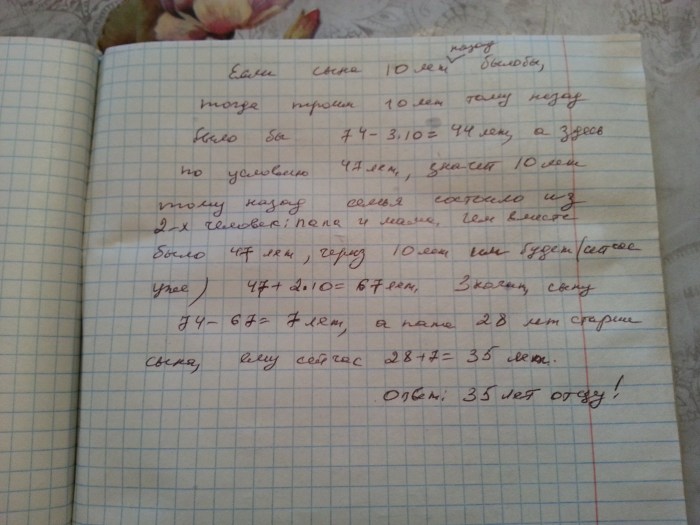 назад
Если сына 10 лет былобы,
тогда троим 10 лет тому назад
было бы 74-3·10=44 лет, а здесь
по условию 47 лет, значит 10 лет
тому назад семья состояло из
2-х человек: папа и мама. Им вместе
было 47 лет, через 10 лет им будет (сейчас
уже) 47+2·10=67 лет. Значит, сыну
74-67=7 лет, а папа 28 лет старше
сына, ему сейчас 28+7=35 лет.
Ответ: 35 лет отцу!